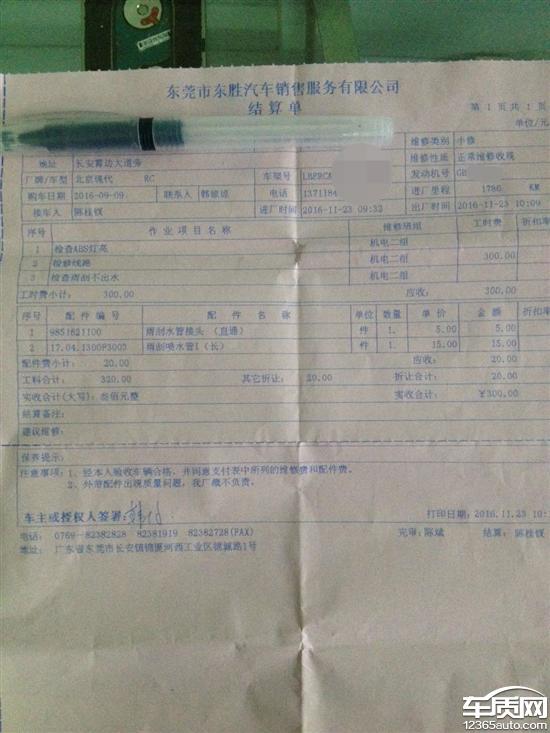 东莞市东胜汽车销售服务有限公司
结算单
第 1 页共 1 页
单位/元
维修类别 小修
地址 长安霄边大道旁 维修性质 正常维修收现
厂牌/车型 北京现代 RC 车架号 LBERCA 发动机号 GB
购车日期 2016-09-09 联系人 电话 1371184 进厂里程 1786 KM
接车人 陈桂钗 进厂时间 2016-11-23 09:32 出厂时间 2016-11-23 10:09
序号 作业项目名称 维修班组 工时费 折扣率
1 检查ABS灯亮 机电二组
2 检修线路 机电二组 300.00
3 检查雨刮不出水 机电二组
工时费小计: 300.00 应收: 300.00
序号 配件编号 配件名称 单位 数量 单价 金额 折扣率
1 9851621100 雨刮水管接头 (直通) 件 1. 5.00 5.00
2 17.04.1300P3003 雨刮喷水管1(长) 件 1. 15.00 15.00
配件费小计: 20.00 应收: 20.00
工料合计: 320.00 其它折让: 20.00 折让合计: 20.00
实收合计(大写): 叁佰元整 实收合计: ¥300.00
结算备注:
建议维修:
保养提示:
注意事项: 1、经本人验收车辆合格,并同意支付表中所列的维修费和配件费。
2、外带配件出现质量问题,我厂概不负责。
车主或授权人签署:
打印日期: 2016.11.23 10:
电话: 0769-82382828 82381919 82382728(FAX) 完审: 陈斌 结算: 陈桂钗
地址: 广东省东莞市长安镇锦厦河西工业区锦诚路1号
车质网
12365auto.com